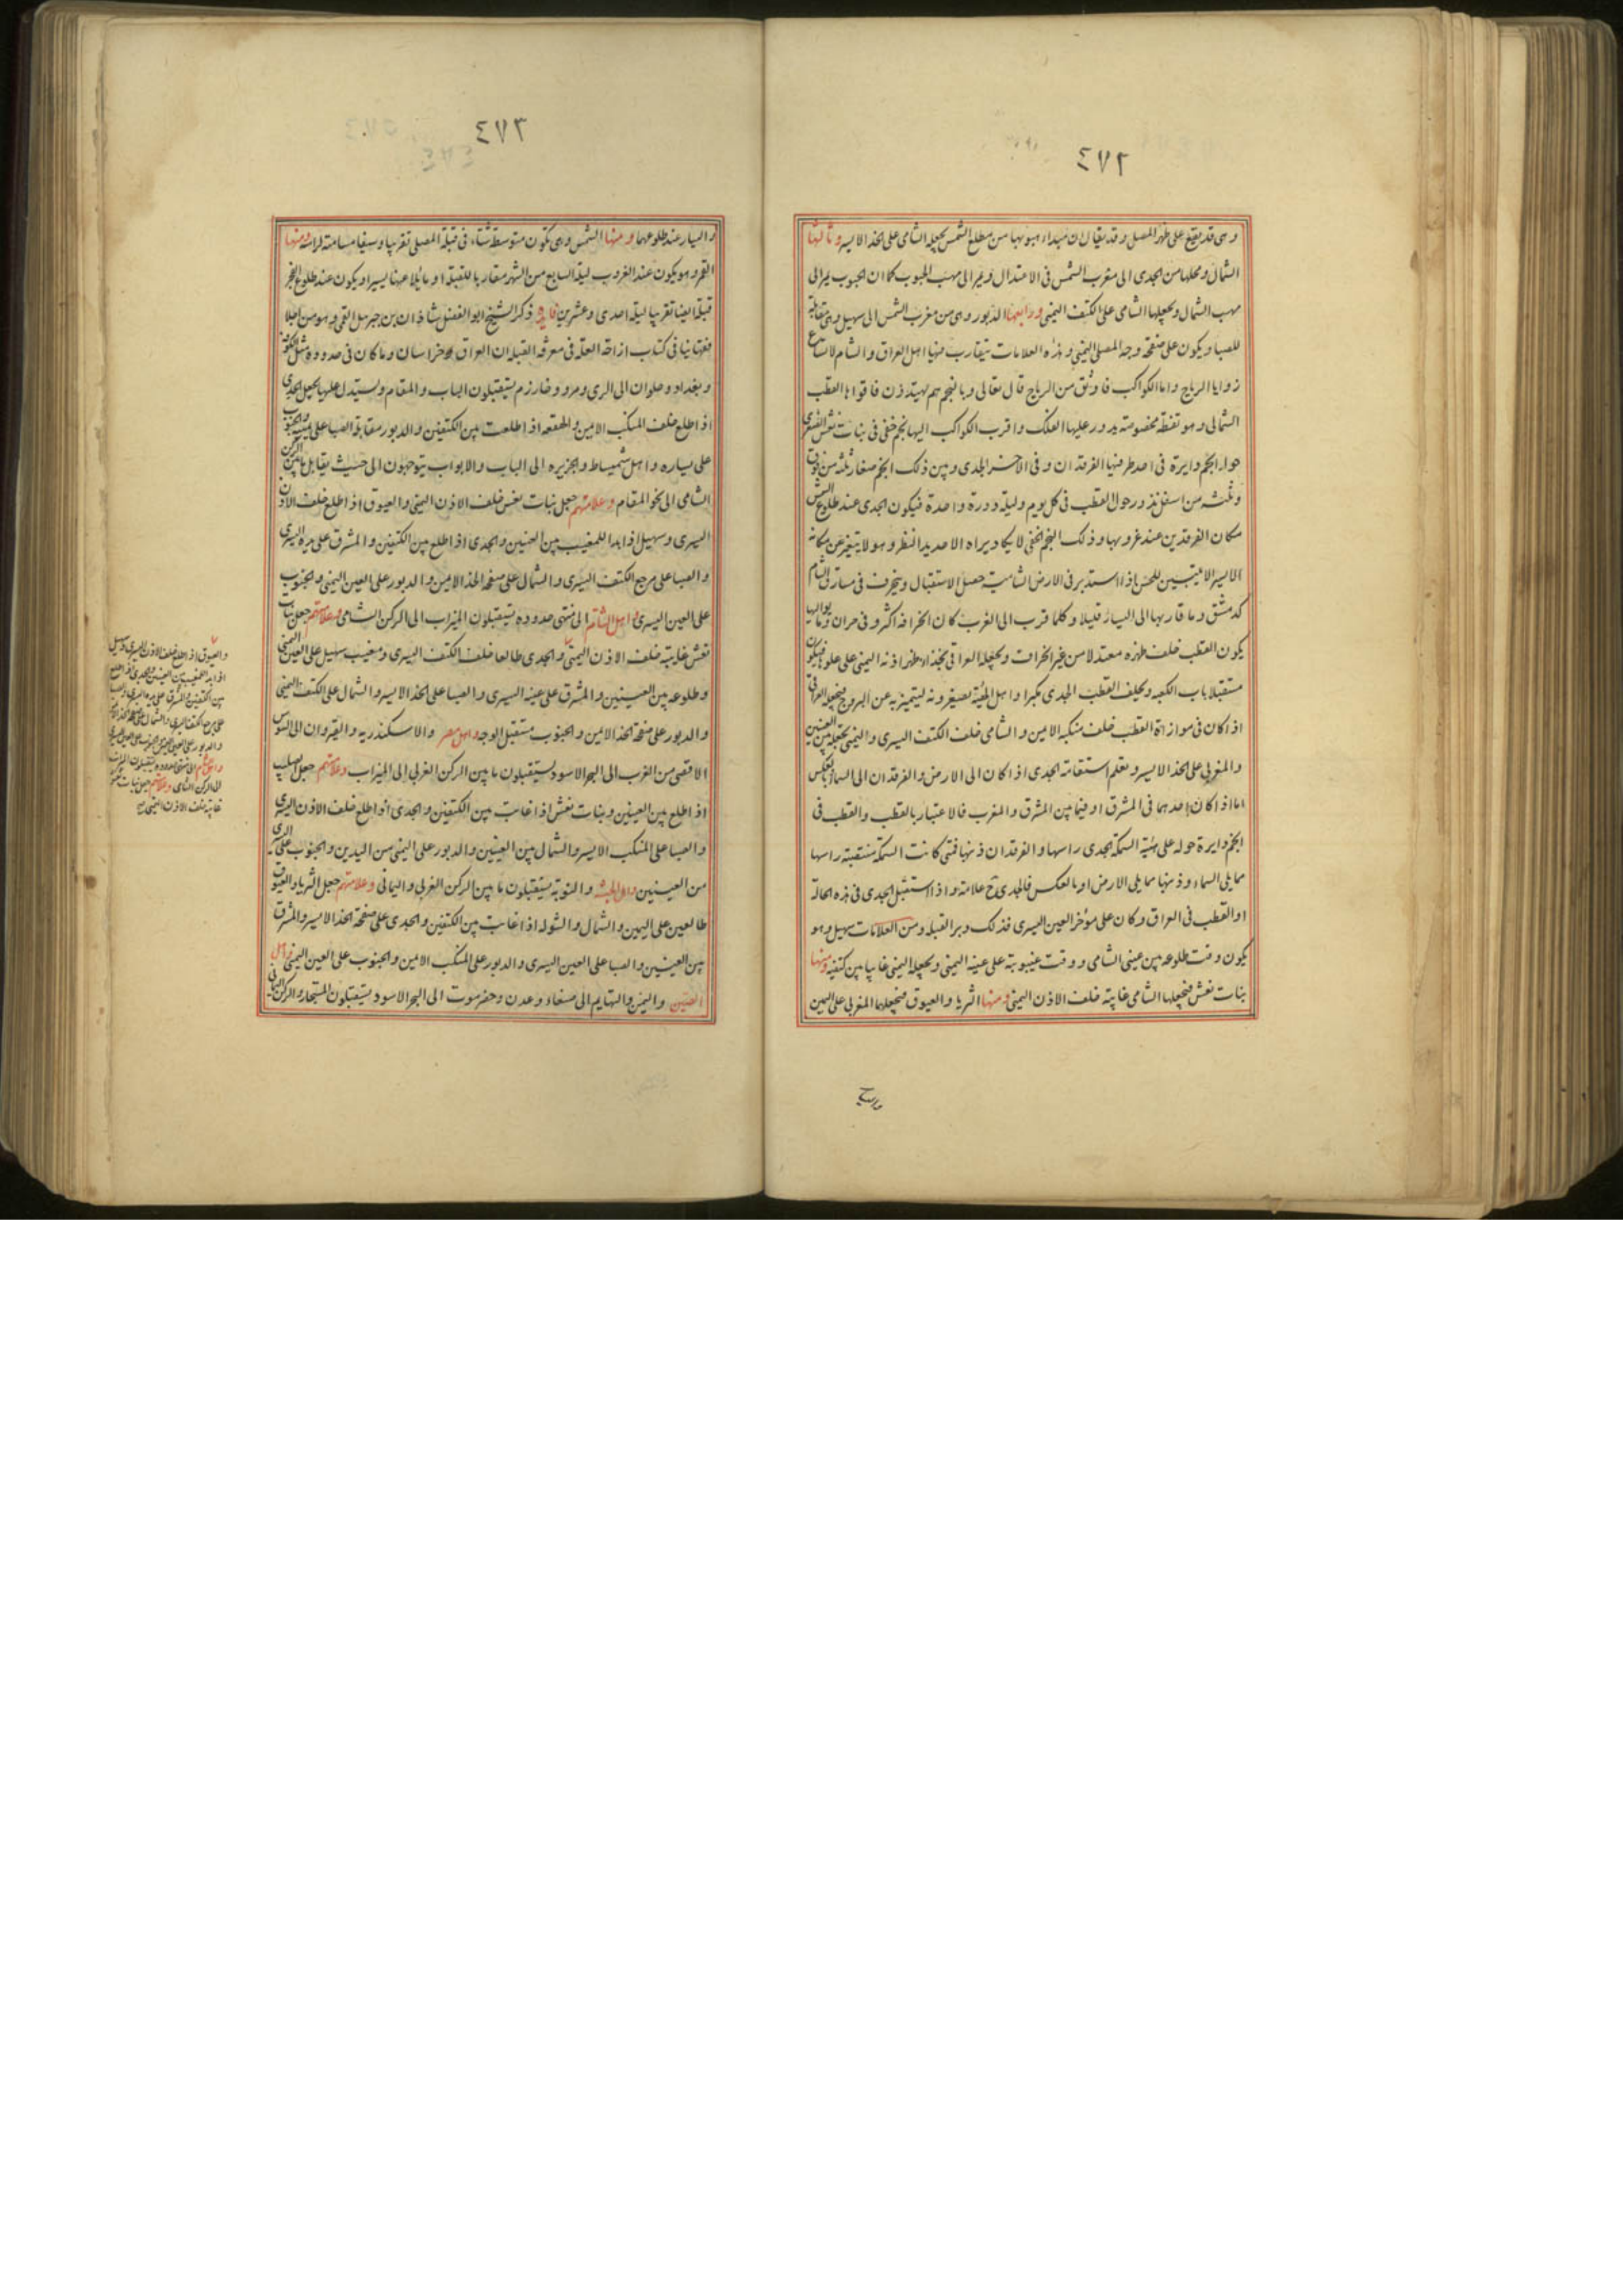 ٤٧٢
وهى قد يقع على ظهر المصلى وقد يقال ان مبداء هبوبها من مطلع الشمس يجعله الشامى على الخد الايسر وثالثها
الشمال ومحلها من الجدى الى مغرب الشمس فى الاعتدال ويمر الى مهب الجنوب كما ان الجنوب يمر الى
مهب الشمال ويجعلها الشامى على الكتف اليمنى ورابعها الدبور وهى من مغرب الشمس الى سهيل وهى مقابلة
للصبا ويكون على صفحة وجه المصلى اليمنى وهذه العلامات يتقارب فيها اهل العراق والشام لاتساع
زوايا الرياح واما الكواكب فاوثق من الرياح قال تعالى وبالنجم هم يهتدون فاقواها القطب
الشمالى وهو نقطة مخصوصة يدور عليها الفلك واقرب الكواكب اليها نجم خفى فى بنات نعش الصغرى
حوله انجم دايرة فى احد طرفيها الفرقدان وفى الاخر الجدى وبين ذلك انجم صغار ثلثة من فوق
وثلثه من اسفل تدور حول القطب فى كل يوم وليلة دورة واحدة فيكون الجدى عند طلوع الشمس
مكان الفرقدين عند غروبها وذلك النجم الخفى لا يكاد يراه الا حديد النظر وهو لا يتغير عن مكانه
الا يسيرا لا يتبين للحس فاذا استدبر فى الارض الشامية حصل الاستقبال وينحرف فى مشارق الشام
كدمشق وما قاربها الى اليسار قليلا وكلما قرب الى الغرب كان انحرافه اكثر وفى حران وما يواليها
يكون القطب خلف ظهره معتدلا من غير انحراف ويجعله العراقى بحذاء ظهر اذنه اليمنى على علوها فيكون
مستقبلا باب الكعبه ويخلف القطب الجدى مكبرا واهل الهيئة يصغرونه ليتميز به عن البروج فيجعله العراقى
اذا كان فى موازاة القطب خلف منكبه الايمن والشامى خلف الكتف اليسرى واليمنى يجعله بين العينين
والمغربى على الخد الايسر وتعلم استقامة الجدى اذا كان الى الارض والفرقدان الى السماء او بالعكس
اما اذا كان احدهما فى المشرق او فيما بين المشرق والمغرب فالاعتبار بالقطب والقطب فى
انجم دايرة حوله على هيئة السمكة الجدى راسها والفرقدان ذنبها فمتى كانت السمكة منتصبة راسها
مما يلى السماء وذنبها مما يلى الارض او بالعكس فالجدى ح علامة واذا استقبل الجدى فى هذه الحالة
او القطب فى العراق وكان على مؤخر العين اليسرى فذلك دبر القبله ومن العلامات سهيل وهو
يكون وقت طلوعه بين عينى الشامى ووقت غيبوبته على عينه اليمنى ويجعله اليمنى غايبا بين كتفيه ومنها
بنات نعش فيجعلها الشامى غايبة خلف الاذن اليمنى ومنها الثريا والعيوق فيجعلهما المغربى على اليمين
٤٧٣
واليسار عند طلوعهما ومنها الشمس وهى تكون متوسطة شتاء فى قبلة المصلى تقريبا وصيفا مسامتة لراسه ومنها
القمر وهو يكون عند الغروب ليلة السابع من الشهر مقاربا للقبلة او مائلا عنها يسيرا ويكون عند طلوع الفجر
قبلة ايضا تقريبا ليلة احدى وعشرين فايده ذكر الشيخ ابو الفضل شاذان بن جبرئيل القمى وهو من اجلا
فقهائنا فى كتاب ازاحة العلة فى معرفة القبله ان العراق وخراسان وما كان فى حدوده مثل الكوفة
وبغداد وحلوان الى الرى ومرو وخوارزم يستقبلون الباب والمقام ويستدل عليها بجعل الجدى
اذا طلع خلف المنكب الايمن والهقعه اذا طلعت بين الكتفين والدبور مقابلة والصبا على يمينه والجنوب
على يساره واهل شميساط والجزيره الى الباب والابواب يتوجهون الى حيث يقابل ما بين الركن
الشامى الى نحو المقام وعلامتهم جعل بنات نعش خلف الاذن اليمنى والعيوق اذا طلع خلف الاذن
اليسرى وسهيل اذا بدا للمغيب بين العينين والجدى اذا طلع بين الكتفين والمشرق على يده اليسرى
والصبا على مرجع الكتف اليسرى والشمال على صفحة الخد الايمن والدبور على العين اليمنى والجنوب
على العين اليسرى واهل الشام الى منتهى حدوده يستقبلون الميزاب الى الركن الشامى وعلامتهم جعل بنات
نعش غايبة خلف الاذن اليمنى والجدى طالعا خلف الكتف اليسرى ومغيب سهيل على العين اليمنى
وطلوعه بين العينين والمشرق على عينه اليسرى والصبا على الخد الايسر والشمال على الكتف اليمنى
والدبور على صفحة الخد الايمن والجنوب مستقبل الوجه واهل مصر والاسكندريه والقيروان الى السوس
الاقصى من الغرب الى البحر الاسود يستقبلون ما بين الركن الغربى الى الميزاب وعلامتهم جعل الصليب
اذا طلع بين العينين وبنات نعش اذا غابت بين الكتفين والجدى اذا طلع خلف الاذن اليسرى
والصبا على المنكب الايسر والشمال بين العينين والدبور على اليمنى من اليدين والجنوب على اليسرى
من العينين واهل الحبشه والنوبة يستقبلون ما بين الركن الغربى واليمانى وعلامتهم جعل الثريا والعيوق
طالعين على اليمين والشمال والشوله اذا غابت بين الكتفين والجدى على صفحة الخد الايسر والمشرق
بين العينين والصبا على العين اليسرى والدبور على المنكب الايمن والجنوب على العين اليمنى واهل
الصين واليمن والتهايم الى صنعاء وعدن وحضرموت الى البحر الاسود يستقبلون المستجار والركن اليمانى
والعيوق اذا طلع خلف الاذن اليسرى وسهيل
اذا بدا للمغيب بين العينين والجدى اذا طلع
بين الكتفين والمشرق على يده اليسرى والصبا
على مرجع الكتف اليسرى والشمال على صفحة الخد الايمن
والدبور على العين اليمنى والجنوب على العين اليسرى
واهل الشام الى منتهى حدوده يستقبلون الميزاب
الى الركن الشامى وعلامتهم جعل بنات نعش
غايبة خلف الاذن اليمنى صح